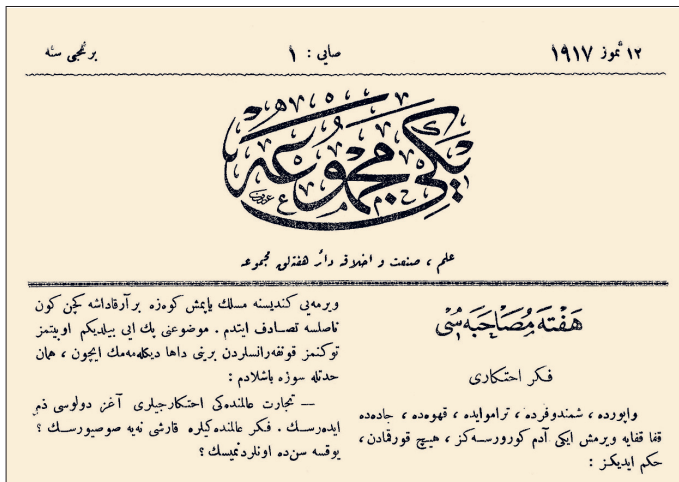 ١٢ تموز ١٩١٧
صايى : ١
برنجى سنه
يكى مجموعه
علم ، صنعت و اخلاقه دائر هفته‌لق مجموعه
هَفْتَه مُصَاحَبَه سِى
فكر احتكارى
واپورده ، شمندوفرده ، تراموايده ، قهوه‌ده ، جاده‌ده
قفا قفايه ويرمش ايكى آدم كورورسه‌كز ، هيچ قورقمادن ،
حكم ايديكز :
ويرمه‌يى كنديسنه مسلك ياپمش كوزه بر آرقاداشه كچن كون
ناصلسه تصادف ايتدم . موضوعنى پك ايى بيلديكم اوبيتمز
توكنمز قونفه‌رانسلردن برينى داها ديكله‌مه‌مك ايچون ، همان
حدتله سوزه باشلادم :
— تجارت عالمنده‌كى احتكارجيلرى آغز دولوسى ذم
ايده‌رسك . فكر عالمنده‌كيلره قارشى نه‌يه صوصيورسك ؟
يوقسه سن‌ده اونلردنميسك ؟